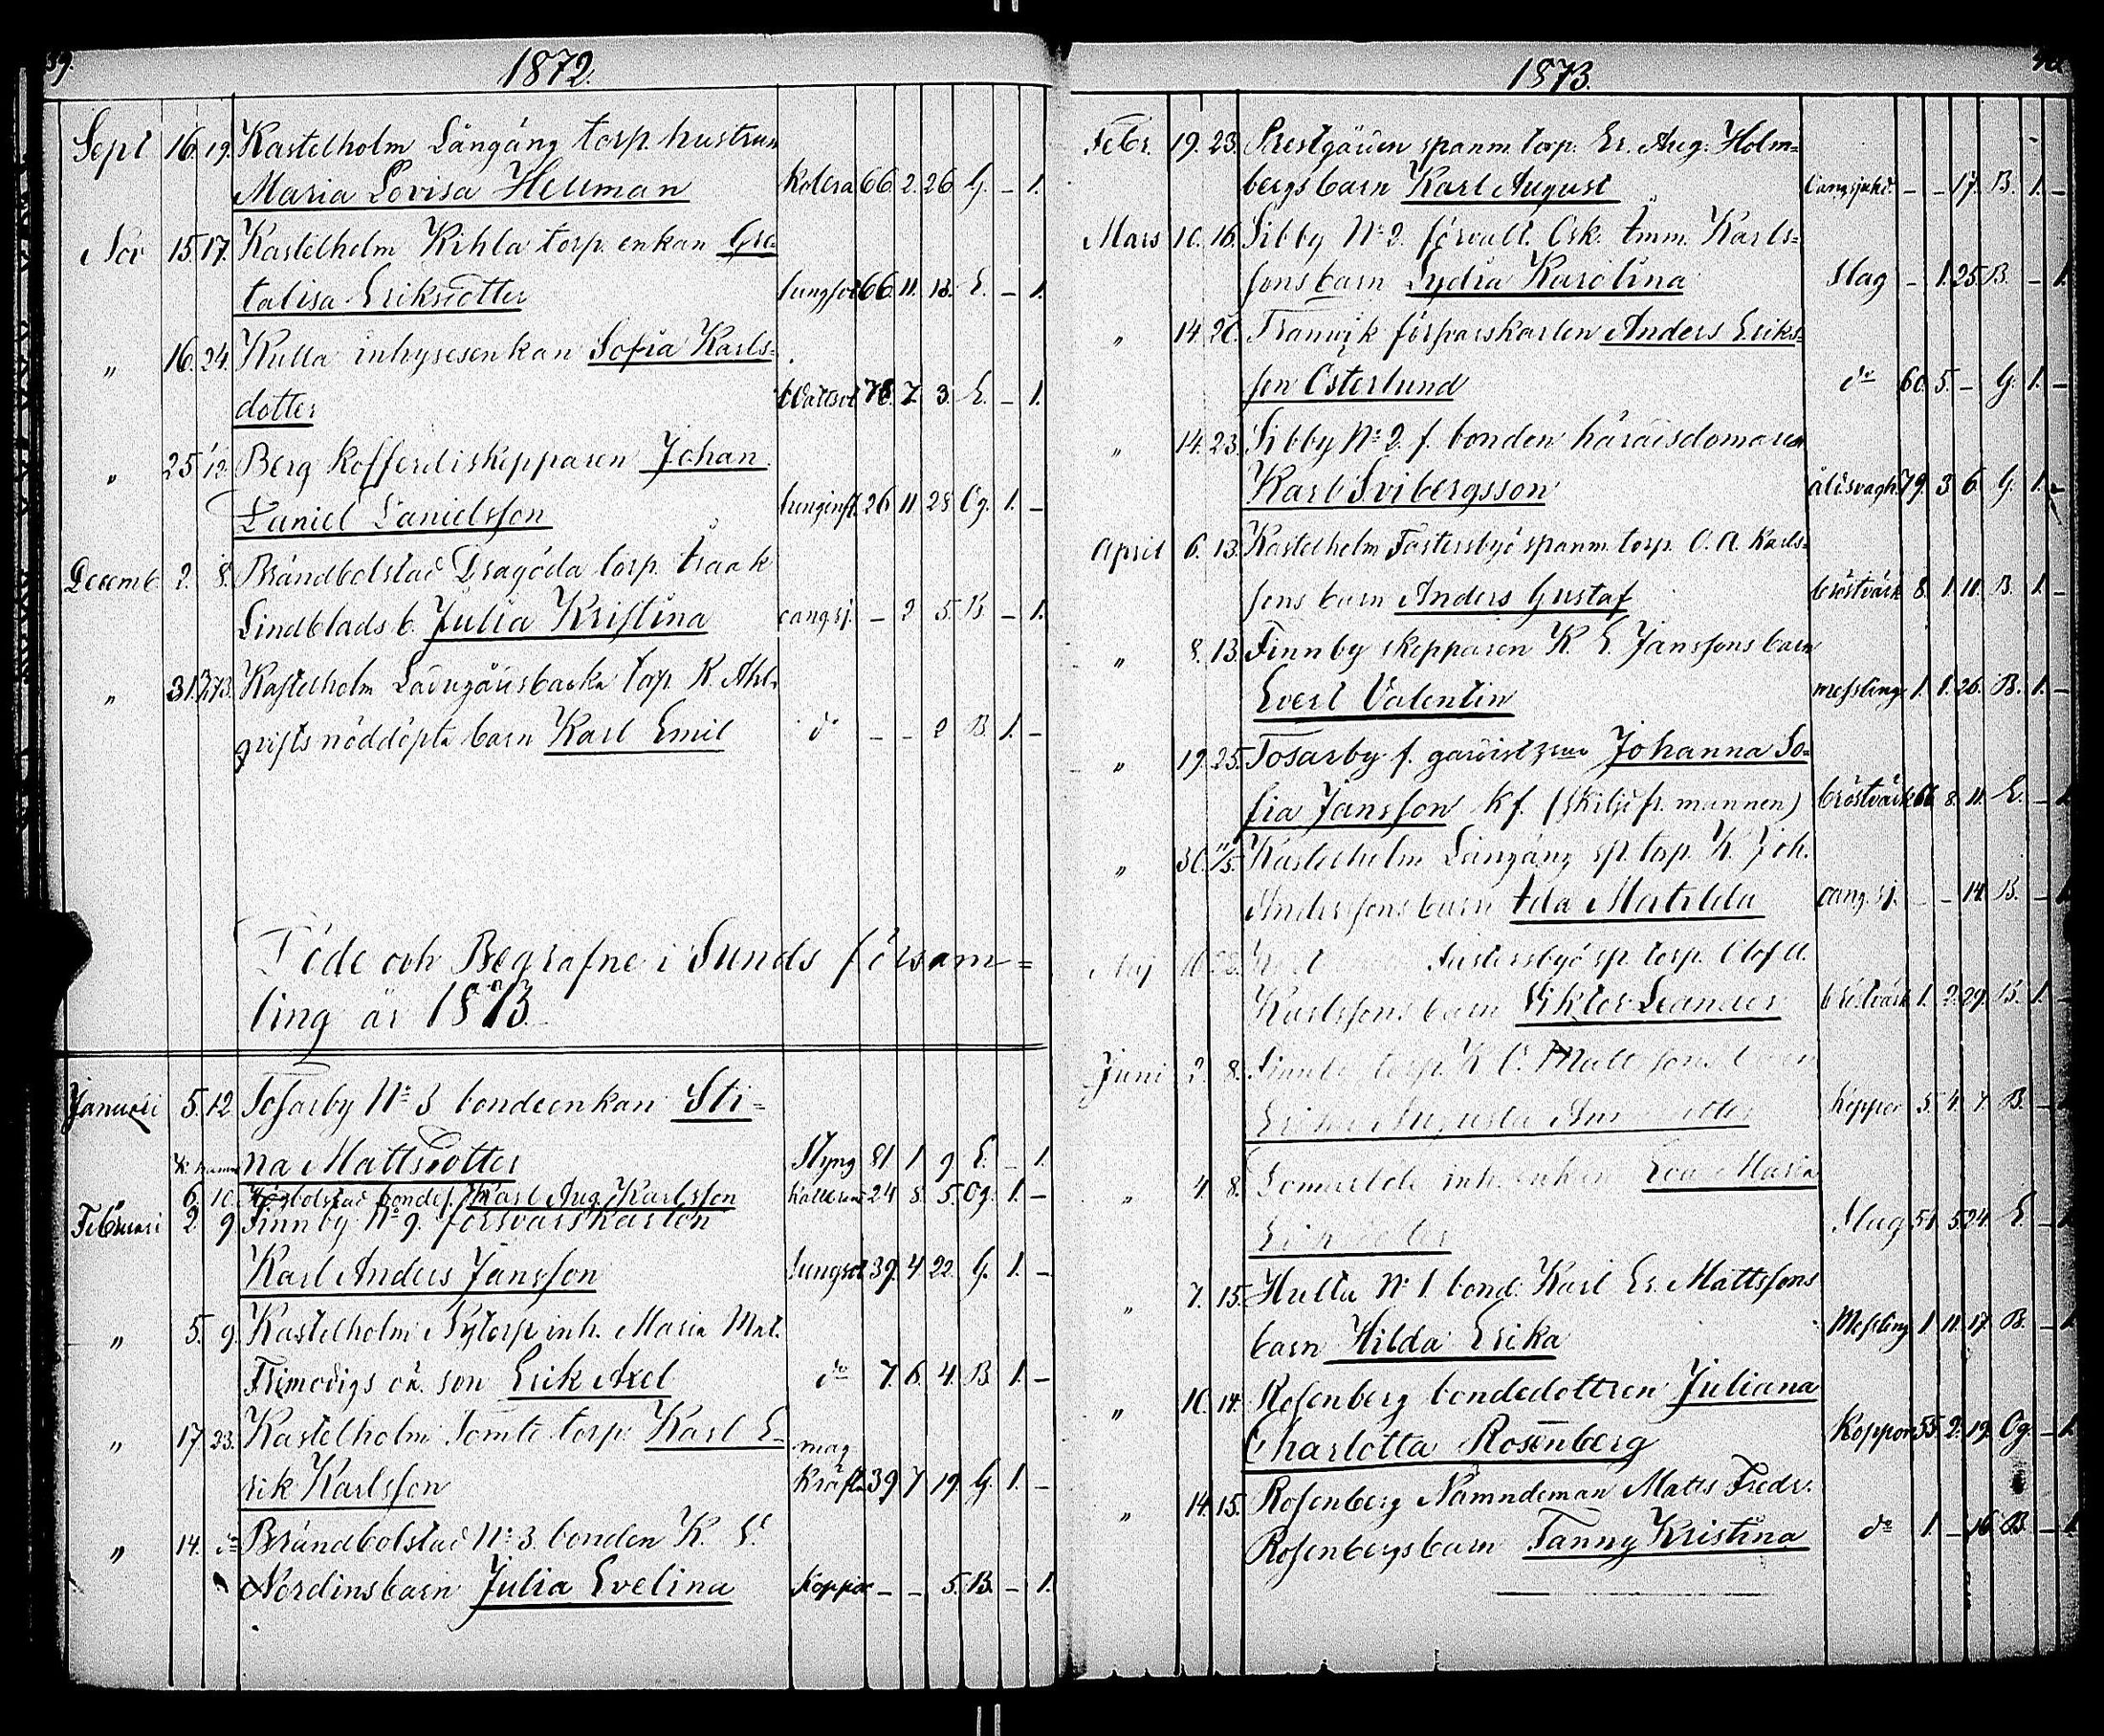 39.
1872.
Sept 16. 19. Kastelholm Långäng torp. hustrun
Maria Lovisa Hellman Kolera 66. 2. 26 G. – 1.
Nov 15. 17. Kastelholm Kihla torp. enkan Gre-
talisa Eriksdotter Lungsot 66. 11. 13. E. – 1.
" 16. 24. Kulla inhysesenkan Sofia Karls-
dotter Wattsot 78. 7. 3. E. – 1.
" 25 1/12 Berg Kofferdiskepparen Johan
Daniel Danielsson lunginfl. 26 11 28 Og. 1. –
Decemb. 2. 8. Brändbolstad Dragöda torp. Isaak
Lindblads b. Julia Kristina cang.sj. – 2 5. B – 1.
" 31. Kastelholm Ladugårdsbacka torp. K. Ahl-
qvists nöddöpta barn Karl Emil do – – 2 B. 1. –
Döde och Begrafne i Sunds försam=
ling år 1873.
Januari 5. 12 Tosarby No 3 bondeenkan Sti=
na Mattsdotter Styng 81 1 9 E. – 1.
6. 10. bonde Karl Aug. Karlsson 24 8. 5. Og. 1. –
Februari 2 9. Finnby No 9. försvarskarlen
Karl Anders Jansson Lungsot 39. 4. 22. G. 1. –
" 5. 9. Kastelholm Nytorp inh. Maria Mat.
Frimodigs oä. son Erik Axel do 7. 6. 4. B 1. –
" 17 23. Kastelholm Tomta torp. Karl E-
rik Karlsson mag Kräfta 39 7 19. G. 1. –
" 14. do Brändbolstad No 3. bonden K. E.
Nordins barn Julia Evelina Koppor – – 5. B. – 1.
40.
1873.
Febr. 19. 23. Prestgården spanm. torp. Er. Aug. Holm=
bergs barn Karl August cangsjukd. – – 17. B. 1. –
Mars 10. 16. Sibby No 2. förvalt. Osk. Emm. Karls=
sons barn Lydia Karolina Slag – 1. 25. B. – 1.
" 14. 20. Tranvik försvarskarlen Anders Eriks=
son Österlund do 60. 5. – G. 1. –
" 14. 23. Sibby No 2. f. bonden häradsdomaren
Karl Svibergsson åldsvagh. 79. 3 6 G. 1. –
April 6. 13. Kastelholm Fastersbyö spanm. torp. O. A. Karls-
sons barn Anders Gustaf bröstvärk 8. 1. 11. B. 1. –
" 8. 13. Finnby skepparen K. E. Janssons barn
Evert Valentin messling 1. 1. 26. B. 1. –
" 19. 25. Tosarby f. gardistens Johanna So-
fia Jansson Kf. (skild fr. mannen) bröstvärk 66. 8. 11. E. – 1.
" 30. 11/5. Kastelholm Långäng sp. torp. K. Joh.
Anderssons barn Ida Matilda cang.sj. – – 14. B. – 1.
Maj Fastersbyö sp. torp. Olof A.
Karlssons barn Viktor Leander bröstvärk 1. 2. 29. B. 1. –
Juni 2. 8. Finnby torp. K. O. Mattssons barn
Augusta Koppor 5. 4. 7. B. –
" 4. 8. inh. enkan Eva Maria
Slag 51. 5. 24. E. – 1.
" 7. 15. Hulta No 1. bond. Karl Er. Mattssons
barn Hilda Erika Messling 1. 11. 17. B. – 1.
" 10. 14. Rosenberg bondedottren Juliana
Charlotta Rosenberg Koppor 55. 2. 19. Og. – 1.
" 14. 15. Rosenberg Nämndeman Matts Fredr.
Rosenbergs barn Fanny Kristina do 1. – 16. B. – 1.